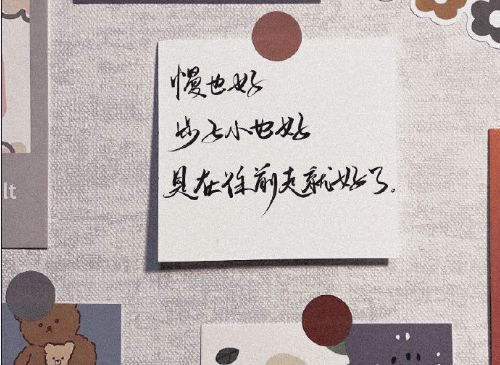 慢也好
步子小也好
是在往前走就好了.
lt